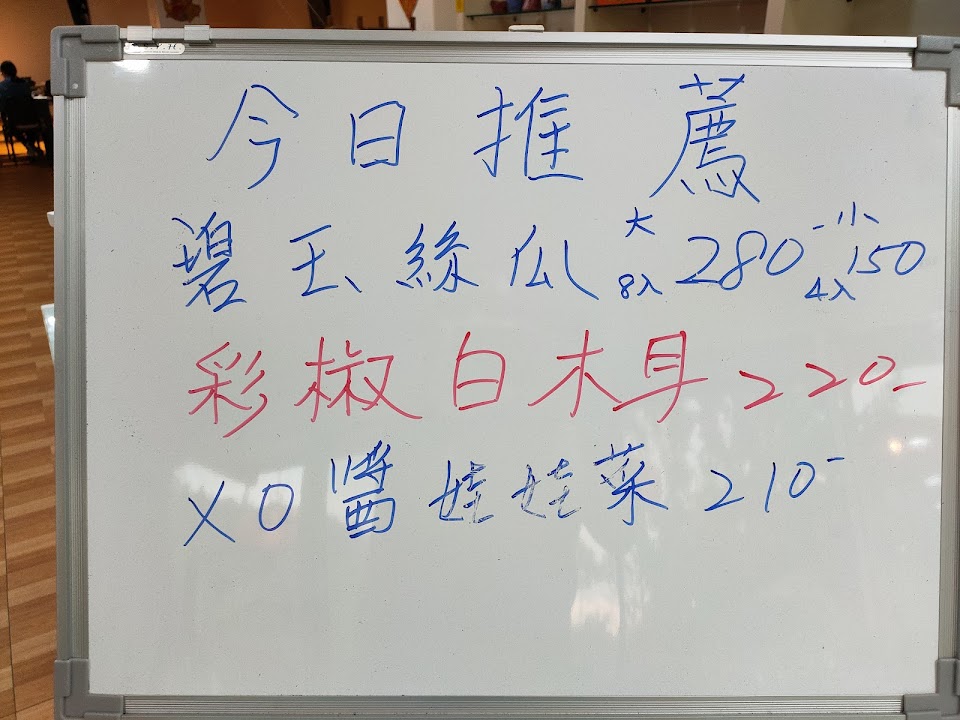 今日推薦
碧玉絲瓜 大 8入 280- 小 4入 150
彩椒白木耳 220-
XO醬娃娃菜 210-